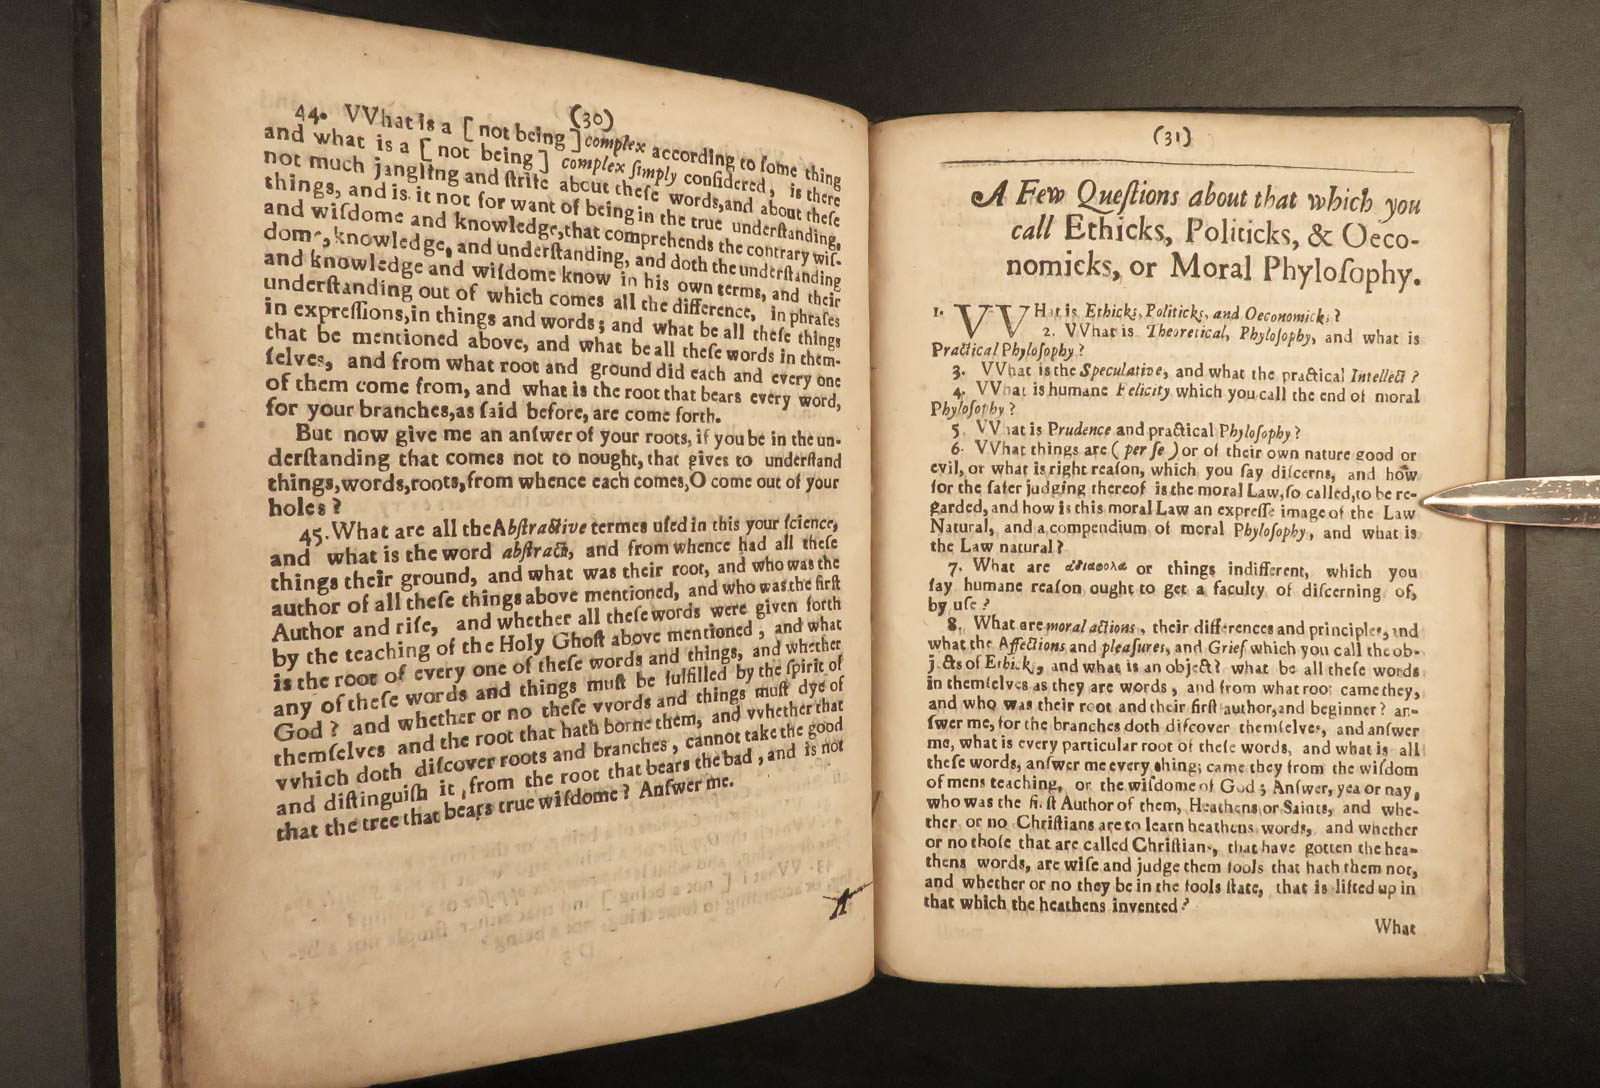 (30)
44. VVhat is a [ not being ] complex according to ſome thing
and what is a [ not being ] complex ſimply conſidered, is there
not much jangling and ſtrife about theſe words,and about theſe
things, and is it not for want of being in the true underſtanding,
and wiſdome and knowledge,that comprehends the contrary wiſ-
dome, knowledge, and underſtanding, and doth the underſtanding
and knowledge and wiſdome know in his own terms, and their
underſtanding out of which comes all the difference, in phraſes
in expreſſions,in things and words; and what be all theſe things
that be mentioned above, and what be all theſe words in them-
ſelves, and from what root and ground did each and every one
of them come from, and what is the root that bears every word,
for your branches,as ſaid before, are come forth.
But now give me an anſwer of your roots, if you be in the un-
derſtanding that comes not to nought, that gives to underſtand
things,words,roots,from whence each comes,O come out of your
holes?
45. What are all the Abſtractive termes uſed in this your ſcience,
and what is the word abſtract, and from whence had all theſe
things their ground, and what was their root, and who was the
author of all theſe things above mentioned, and who was the firſt
Author and riſe, and whether all theſe words were given forth
by the teaching of the Holy Ghoſt above mentioned, and what
is the root of every one of theſe words and things, and whether
any of theſe words and things muſt be fulfilled by the ſpirit of
God? and whether or no theſe vvords and things muſt dye of
themſelves and the root that hath borne them, and vvhether that
vvhich doth diſcover roots and branches, cannot take the good
and diſtinguiſh it, from the root that bears the bad, and is not
that the tree that bears true wiſdome? Anſwer me.
A
(31)
A Few Queſtions about that which you
call Ethicks, Politicks, & Oeco-
nomicks, or Moral Phyloſophy.
1. VVHat is Ethicks, Politicks, and Oeconomicks?
2. VVhat is Theoretical, Phyloſophy, and what is
Practical Phyloſophy?
3. VVhat is the Speculative, and what the practical Intellect?
4. VVhat is humane Felicity which you call the end of moral
Phyloſophy?
5. VVhat is Prudence and practical Phyloſophy?
6. VVhat things are (per ſe) or of their own nature good or
evil, or what is right reaſon, which you ſay diſcerns, and how
for the ſafer judging thereof is the moral Law, ſo called, to be re-
garded, and how is this moral Law an expreſſe image of the Law
Natural, and a compendium of moral Phyloſophy, and what is
the Law natural?
7. What are αδιαφολα or things indifferent, which you
ſay humane reaſon ought to get a faculty of diſcerning of,
by uſe?
8. What are moral actions, their differences and principles, and
what the Affections and pleaſures, and Grief which you call the ob-
jects of Ethicks, and what is an object? what be all theſe words
in themſelves as they are words, and from what root came they,
and who was their root and their firſt author,and beginner? an-
ſwer me, for the branches doth diſcover themſelves, and anſwer
me, what is every particular root of theſe words, and what is all
theſe words, anſwer me every thing; came they from the wiſdom
of mens teaching, or the wiſdome of God; Anſwer, yea or nay,
who was the firſt Author of them, Heathens or Saints, and whe-
ther or no Chriſtians are to learn heathens words, and whether
or no thoſe that are called Chriſtians, that have gotten the hea-
thens words, are wiſe and judge them fools that hath them not,
and whether or no they be in the fools ſtate, that is lifted up in
that which the heathens invented?
What